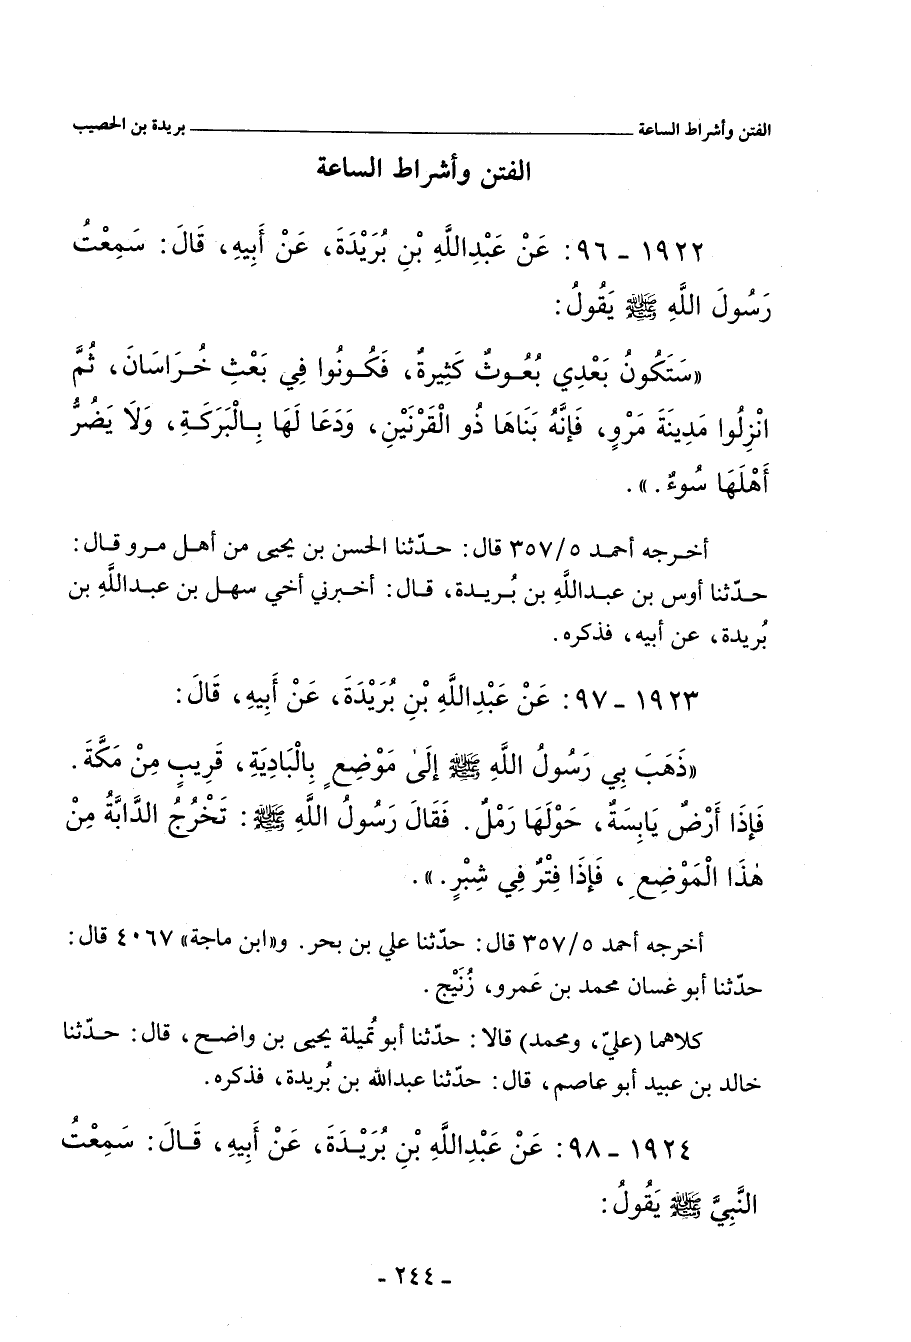 الفتن وأشراط الساعة ـــــــــ بريدة بن الحصيب
الفتن وأشراط الساعة
١٩٢٢ ـ ٩٦: عَنْ عَبْدِاللَّهِ بْنِ بُرَيْدَةَ، عَنْ أَبِيهِ، قَالَ: سَمِعْتُ
رَسُولَ اللَّهِ ﷺ يَقُولُ:
«سَتَكُونُ بَعْدِي بُعُوثٌ كَثِيرةٌ، فَكُونُوا فِي بَعْثِ خُرَاسَانَ، ثُمَّ
انْزِلُوا مَدِينَةَ مَرْوٍ، فَإِنَّهُ بَنَاهَا ذُو الْقَرْنَيْنِ، وَدَعَا لَهَا بِالْبَرَكَةِ، وَلَا يَضُرُّ
أَهْلَهَا سُوءٌ.».
أخرجه أحمد ٣٥٧/٥ قال: حدّثنا الحسن بن يحيى من أهل مرو قال:
حدّثنا أوس بن عبداللَّه بن بُريدة، قال: أخبرني أخي سهل بن عبداللَّه بن
بُريدة، عن أبيه، فذكره.
١٩٢٣ ـ ٩٧: عَنْ عَبْدِاللَّهِ بْنِ بُرَيْدَةَ، عَنْ أَبِيهِ، قَالَ:
«ذَهَبَ بِي رَسُولُ اللَّهِ ﷺ إِلَىٰ مَوْضِعٍ بِالْبَادِيَةِ، قَرِيبٍ مِنْ مَكَّةَ.
فَإِذَا أَرْضٌ يَابِسَةٌ، حَوْلَهَا رَمْلٌ. فَقَالَ رَسُولُ اللَّهِ ﷺ: تَخْرُجُ الدَّابَّةُ مِنْ
هٰذَا الْمَوْضِعِ، فَإِذَا فِتْرٌ فِي شِبْرٍ.».
أخرجه أحمد ٣٥٧/٥ قال: حدّثنا علي بن بحر. و«ابن ماجة» ٤٠٦٧ قال:
حدّثنا أبو غسان محمد بن عَمرو، زُنَيْج.
كلاهما (عليّ، ومحمد) قالا: حدّثنا أبو تُميلة يحيى بن واضح، قال: حدّثنا
خالد بن عبيد أبو عاصم، قال: حدّثنا عبدالله بن بُريدة، فذكره.
١٩٢٤ ـ ٩٨: عَنْ عَبْدِاللَّهِ بْنِ بُرَيْدَةَ، عَنْ أَبِيهِ، قَالَ: سَمِعْتُ
النَّبِيَّ ﷺ يَقُولُ:
ـ ٢٤٤ ـ